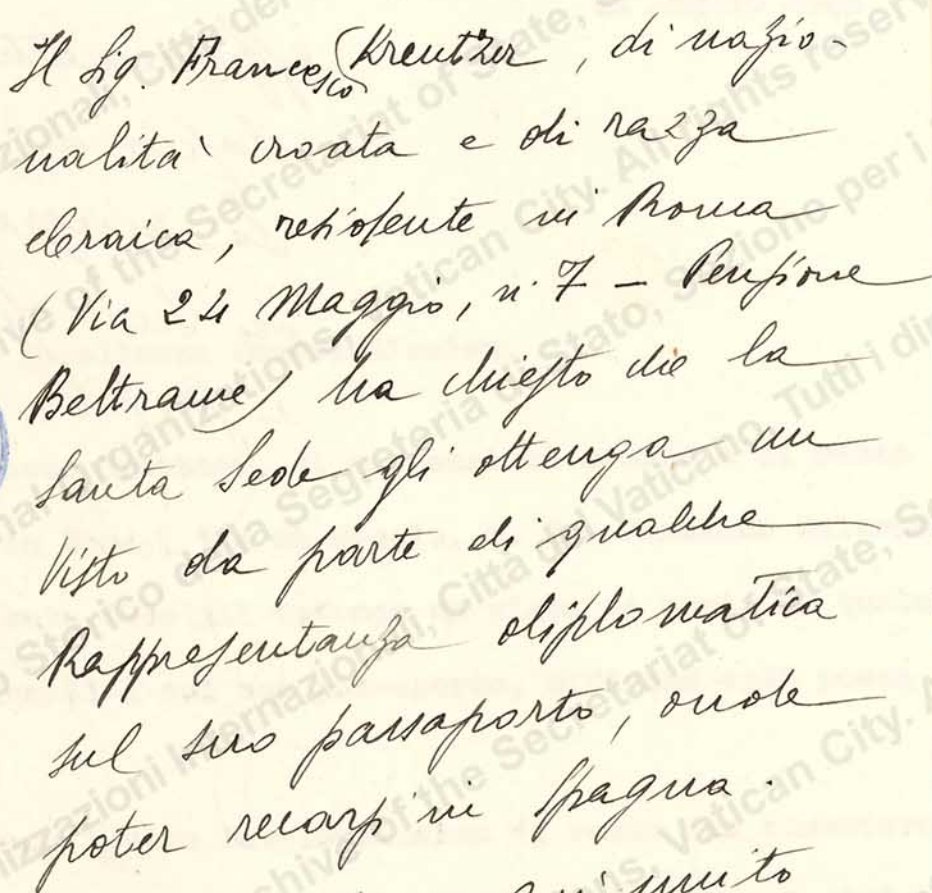 Il Sig. Francesco Kreutzer, di nazio-
nalità croata e di razza
ebraica, residente in Roma
(Via 24 Maggio, n. 7 – Pensione
Beltrame) ha chiesto che la
Santa Sede gli ottenga un
visto da parte di qualche
Rappresentanza diplomatica
sul suo passaporto, onde
poter recarsi in Spagna.
unito